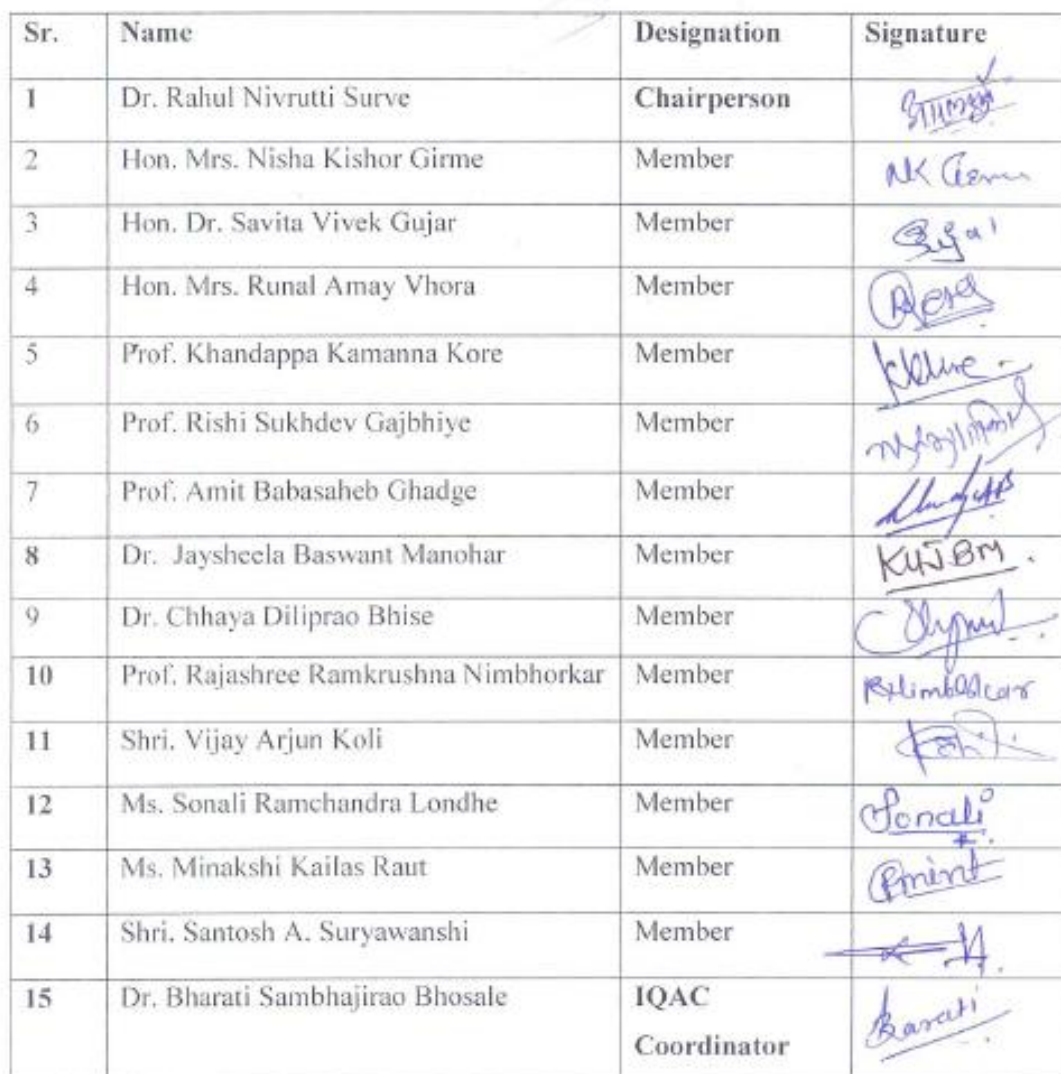 Sr. Name Designation Signature
1 Dr. Rahul Nivrutti Surve Chairperson
2 Hon. Mrs. Nisha Kishor Girme Member NK
3 Hon. Dr. Savita Vivek Gujar Member
4 Hon. Mrs. Runal Amay Vhora Member
5 Prof. Khandappa Kamanna Kore Member
6 Prof. Rishi Sukhdev Gajbhiye Member
7 Prof. Amit Babasaheb Ghadge Member
8 Dr. Jaysheela Baswant Manohar Member
9 Dr. Chhaya Diliprao Bhise Member
10 Prof. Rajashree Ramkrushna Nimbhorkar Member
11 Shri. Vijay Arjun Koli Member
12 Ms. Sonali Ramchandra Londhe Member Sonali
13 Ms. Minakshi Kailas Raut Member
14 Shri. Santosh A. Suryawanshi Member
15 Dr. Bharati Sambhajirao Bhosale IQAC
Coordinator